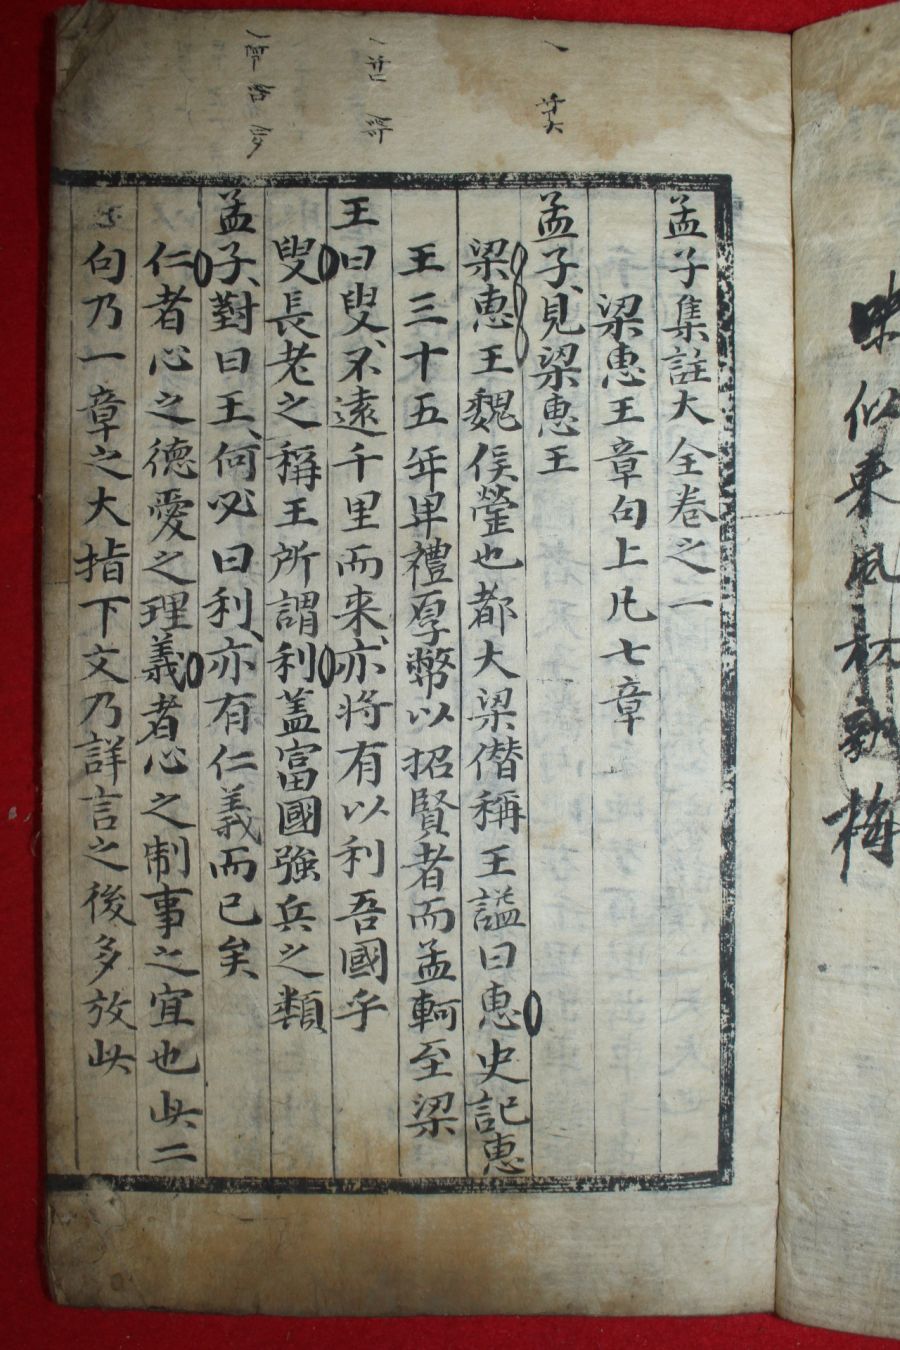 似東風
梅
孟子集註大全卷之一
梁惠王章句上凡七章
孟子見梁惠王
梁惠王魏侯罃也都大梁僭稱王謚曰惠史記惠
王三十五年卑禮厚幣以招賢者而孟軻至梁
王曰叟不遠千里而來亦將有以利吾國乎
叟長老之稱王所謂利蓋富國強兵之類
孟子對曰王何必曰利亦有仁義而已矣
仁者心之德愛之理義者心之制事之宜也此二
句乃一章之大指下文乃詳言之後多放此